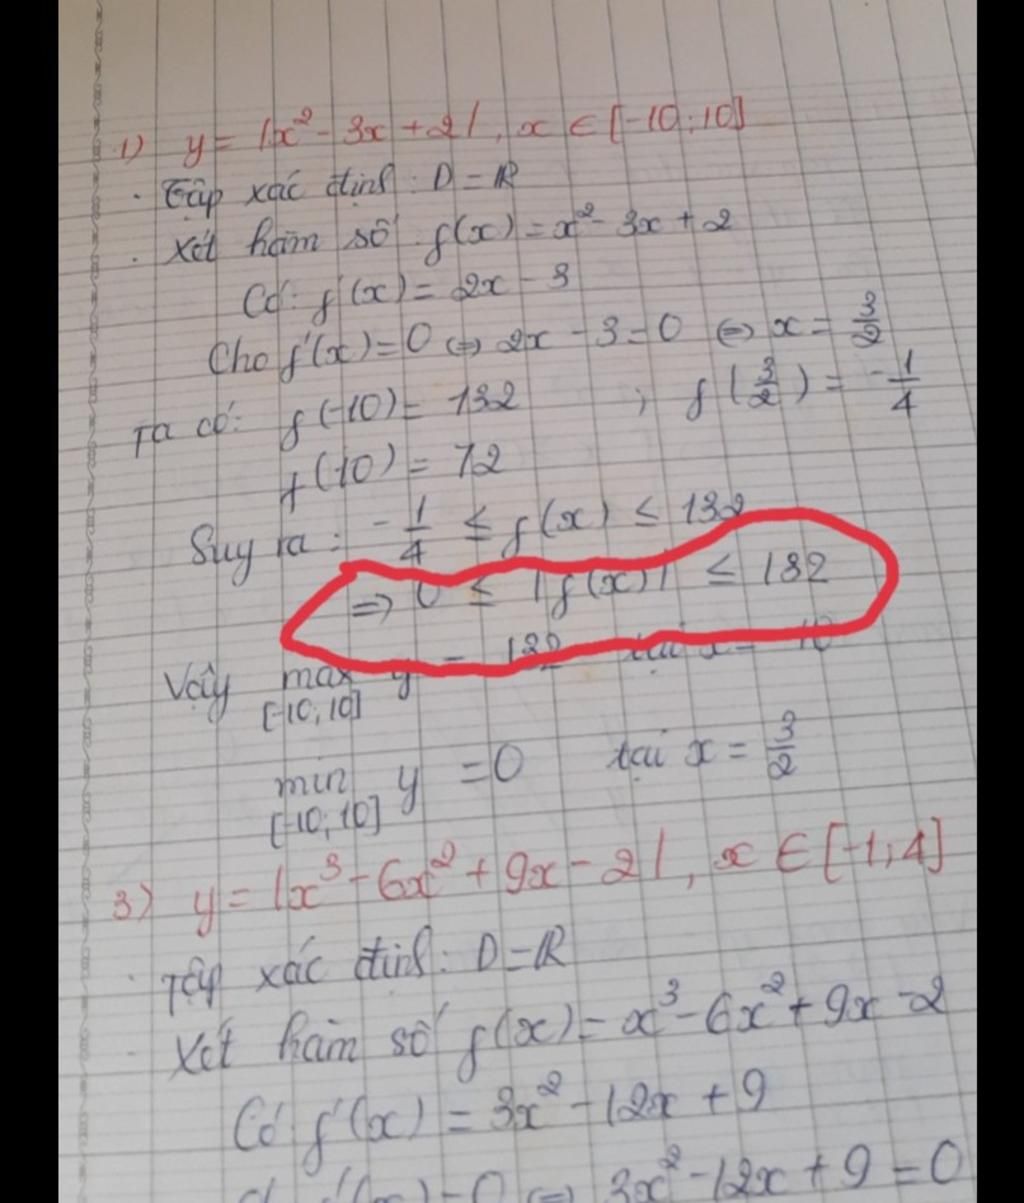 1) y = |x² - 3x + 2|, x ∈ [-10; 10]
. Tập xác định: D = ℝ
. Xét hàm số: f(x) = x² - 3x + 2
Có: f'(x) = 2x - 3
Cho f'(x) = 0 ⇔ 2x - 3 = 0 ⇔ x = 3/2
Ta có: f(-10) = 132 ; f(3/2) = -1/4
f(10) = 72
Suy ra: -1/4 ≤ f(x) ≤ 132
⇒ 0 ≤ |f(x)| ≤ 132
Vậy max y = 132 tại x = -10
[-10; 10]
min y = 0 tại x = 3/2
[-10; 10]
3) y = |x³ - 6x² + 9x - 2|, x ∈ [-1; 4]
. Tập xác định: D = ℝ
. Xét hàm số f(x) = x³ - 6x² + 9x - 2
Có f'(x) = 3x² - 12x + 9
f'(x) = 0 ⇔ 3x² - 12x + 9 = 0